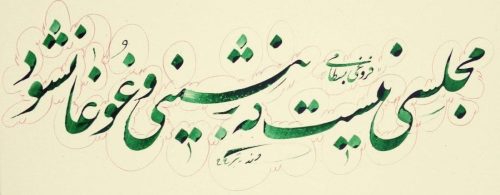 مجلسی نیست که بنشینی و غوغا نشود
فروغی بسطامی